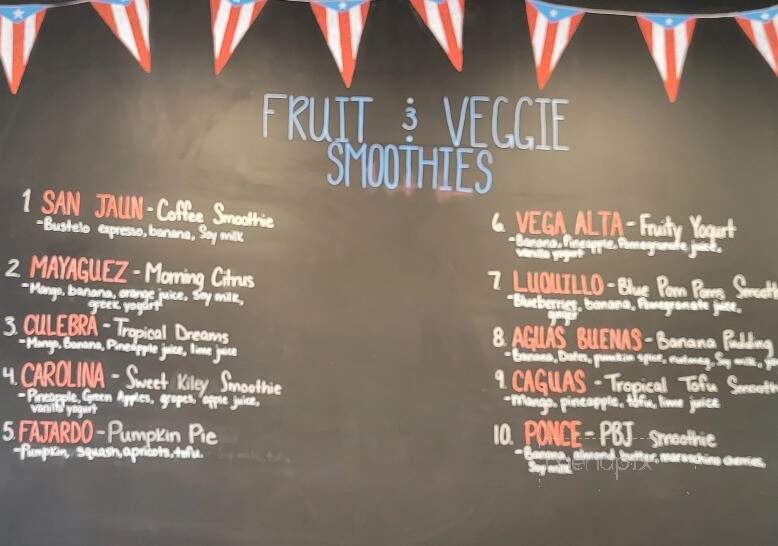 FRUIT & VEGGIE
SMOOTHIES
1 SAN JAUN - Coffee Smoothie
- Bustelo expresso, banana, Soy milk
2 MAYAGUEZ - Morning Citrus
- Mango, banana, orange juice, Soy milk,
greek yogurt
3. CULEBRA - Tropical Dreams
- Mango, Banana, Pineapple juice, lime juice
4. CAROLINA - Sweet Kiley Smoothie
- Pineapple, Green Apples, grapes, apple juice,
vanilla yogurt
5. FAJARDO - Pumpkin Pie
- Pumpkin, squash, apricots, tofu.
6. VEGA ALTA - Fruity Yogurt
- Banana, Pineapple, Pomegranate juice,
vanilla yogurt
7. LUQUILLO - Blue Pom Poms Smooth
- Blueberries, banana, Pomegranate juice,
ginger
8. AGUAS BUENAS - Banana Pudding
- Banana, Dates, pumpkin spice, nutmeg, Soy milk,
9. CAGUAS - Tropical Tofu Smooth
- Mango, pineapple, tofu, lime juice
10. PONCE - PBJ Smoothie
- Banana, almond butter, maraschino cherries,
Soy milk
menupix